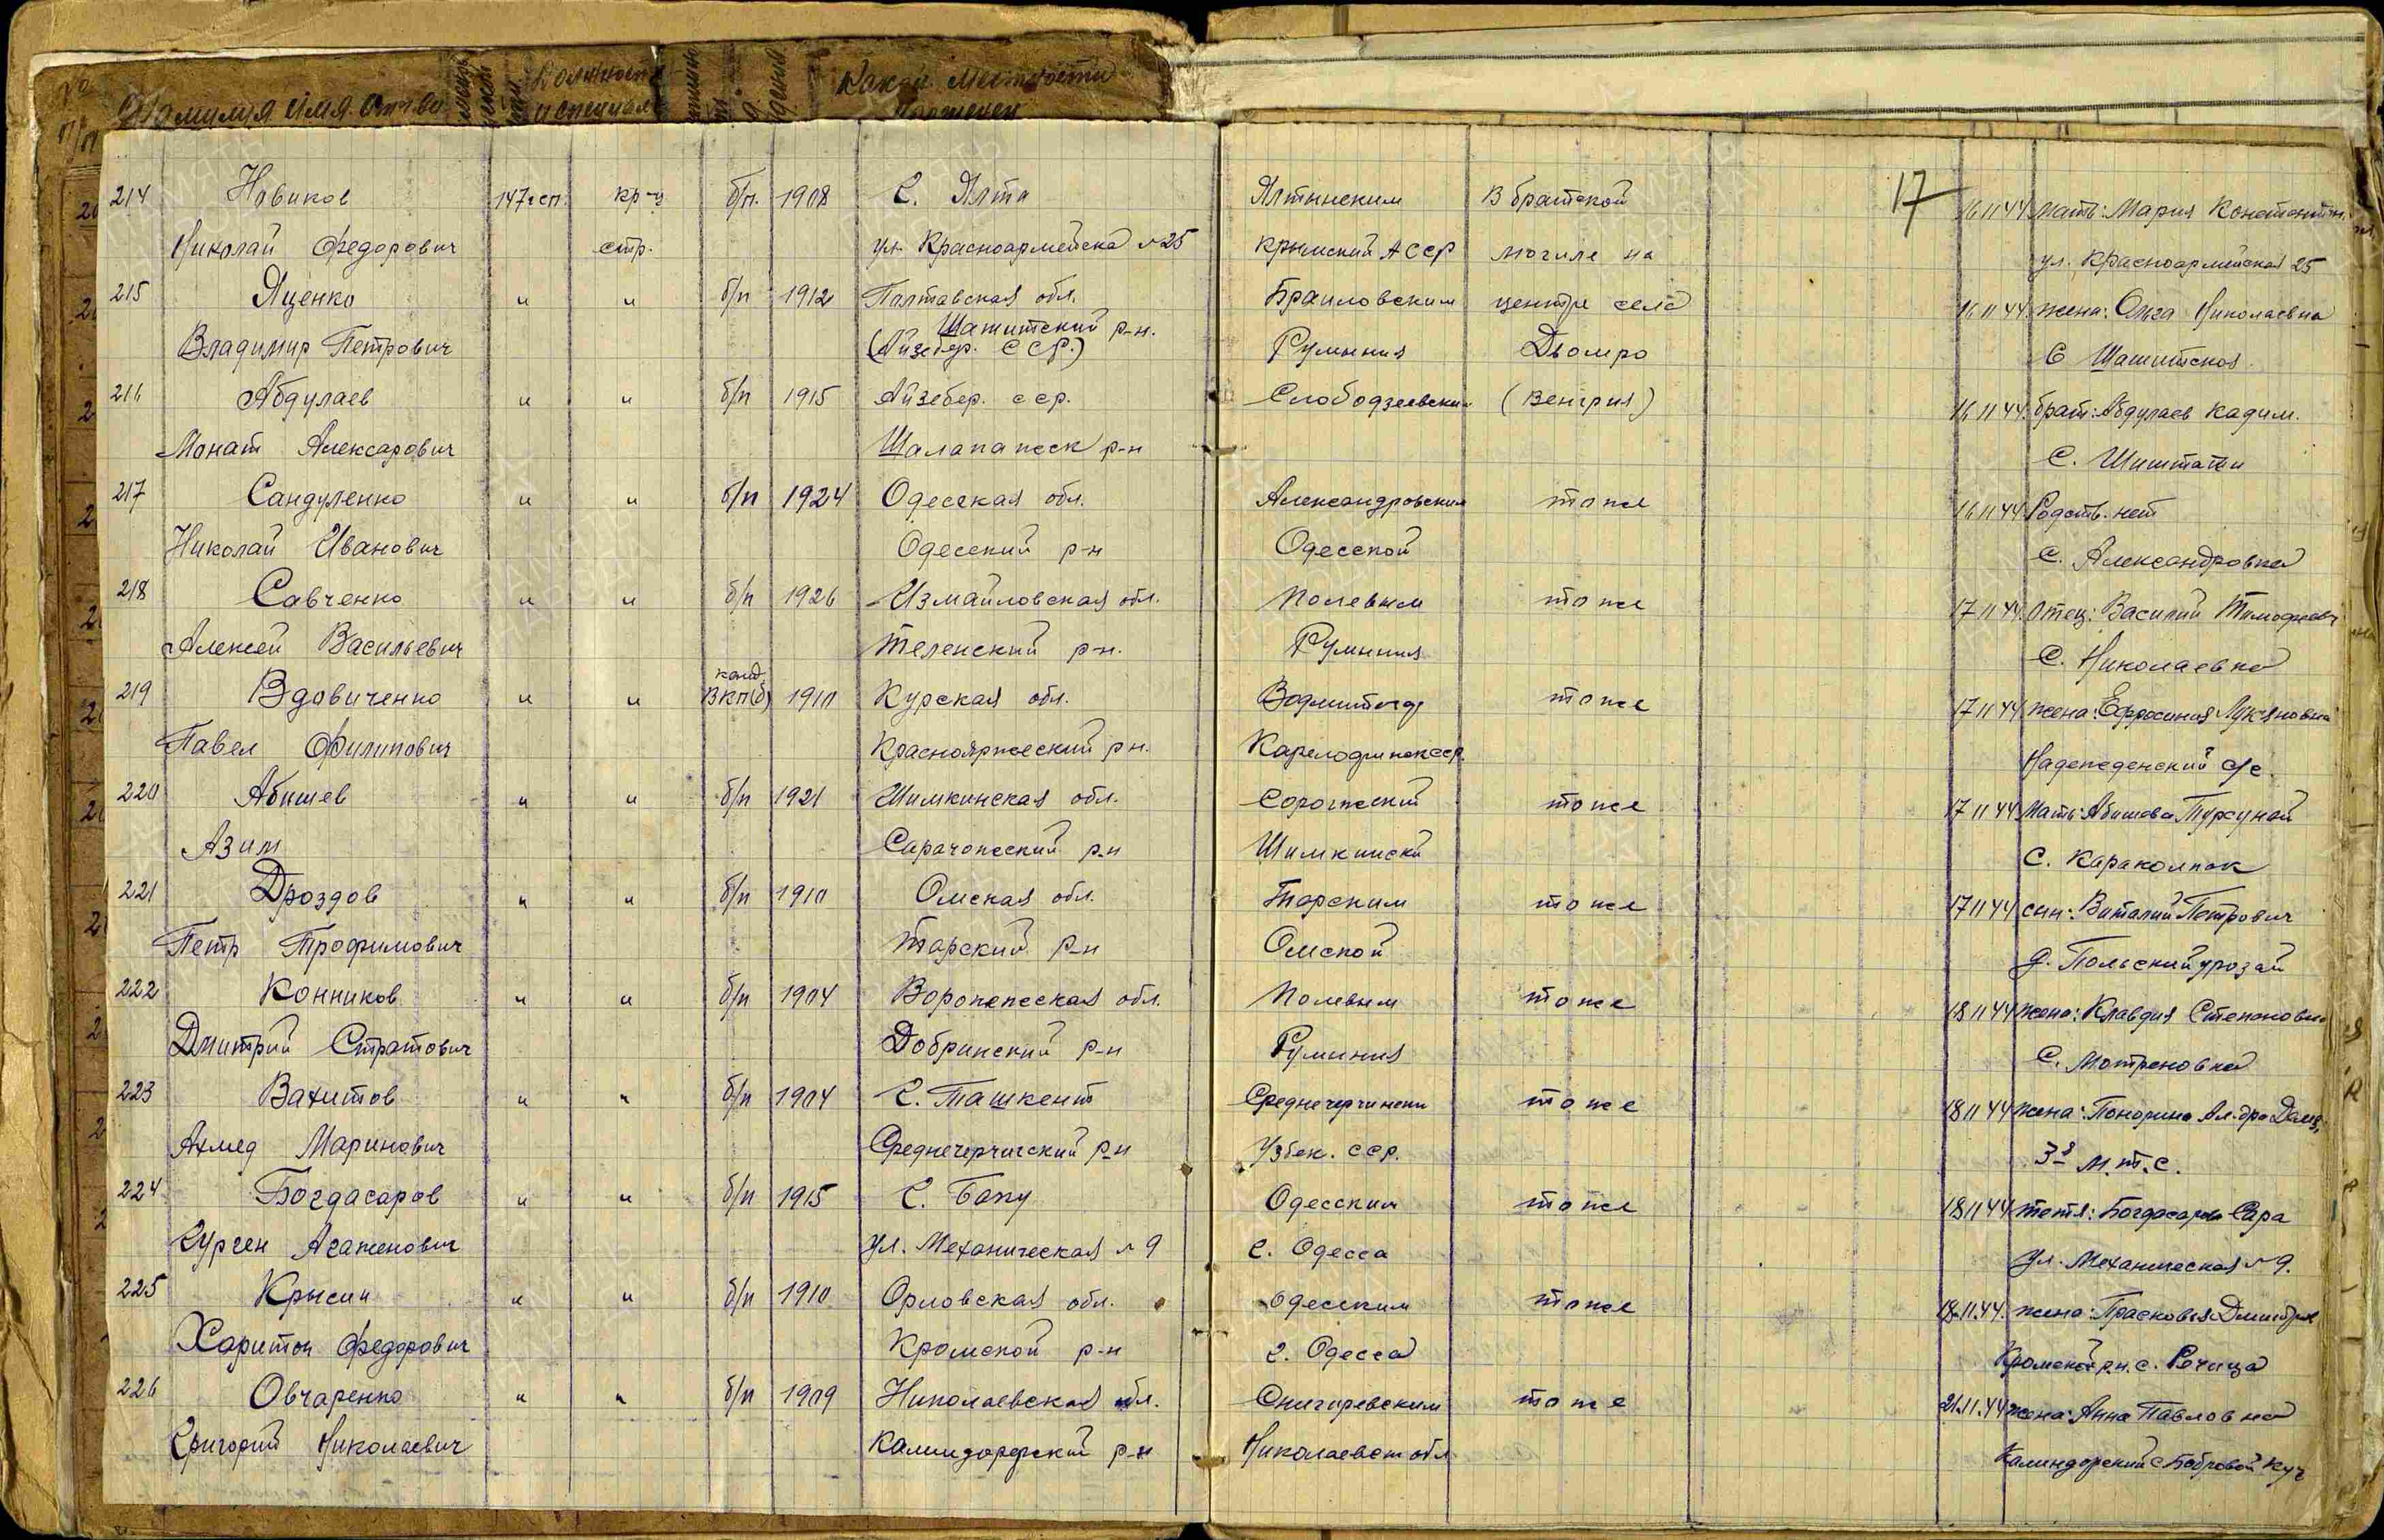 Фамилия Имя Отч-во Должность Какой местности
и специал. уроженец
17
214 Новиков 147 г сп. кр-ц б/п. 1908 г. Ялта Ялтинским В братской 16 11 44 мать: Мария Константин.
Николай Федорович стр. ул. Красноармейска №25 Крымский АССР могиле на ул. Красноармейская 25
215 Яценко " " б/п 1912 Полтавская обл. Браиловским центре села 16 11 44 жена: Ольга Николаевна
Владимир Петрович Шатитский р-н. (Айзебер. ССР.) Румыния Дьомро С Шашитская
216 Абдулаев " " б/п 1915 Айзебер. сср. Слободзеевским (Венгрия) 16 11 44. брат: Абдулаев Кадим.
Монат Алексарович Шалапатеск р-н с. Шиштати
217 Сандуленко " " б/п 1924 Одесская обл. Александровским тоже 16 11 44 Родств. нет
Николай Иванович Одесский р-н Одесской с. Александровка
218 Савченко " " б/п 1926 Измаиловская обл. Полевым тоже 17 11 44. отец: Василий Тимофеевич
Алексей Васильевич Теленский р-н. Румыния с. Николаевка
219 Вдовиченко " " канд. ВКП(б) 1910 Курская обл. тоже 17 11 44 жена: Ефросиния Лукяновна
Павел Филипович Краснояржеский р-н. Карелофинсксср. Надежденский с/с.
220 Абишев " " б/п 1921 Шимкинская обл. Сорогжский тоже 17 11 44 Мать: Абишева Турсуной
Азим Сарачожеский р-н Шимкински с. Караколпак
221 Дроздов " " б/п 1910 Омская обл. Тарским тоже 17 11 44 сын: Виталий Петрович
Петр Трофимович Тарский р-н Омской д. Польский урозай
222 Конников " " б/п 1904 Воронежская обл. Полевым тоже 18 11 44 жена: Клавдия Степановна
Дмитрий Стратович Добринский р-н Румыния с. Мотреновка
223 Вахитов " " б/п 1904 г. Ташкент Среднечерчински тоже 18 11 44 жена: Понорина Ал-дра Дани.
Ахмед Маринович Среднечерчигский р-н Узбек. ССР. 3я м.т.с.
224 Богдасаров " " б/п 1915 г. Баку Одесским тоже 18 11 44 тетя: Богдасарова Сара
Гурген Агаженович ул. Механическая №9 г. Одесса ул. Механическая №9.
225 Крысин " " б/п 1910 Орловская обл. Одесским тоже 18.11.44. жена: Прасковья Дмитрив
Харитон Федорович Кромской р-н г. Одесса Кромской р.н. с. Речица
226 Овчаренко " " б/п 1909 Николаевская обл. Снигиревским тоже 21.11.44 жена: Анна Павловна
Григорий Николаевич Калиндорфский р-н Николаевск обл. Калиндорский с Бобровой Куч